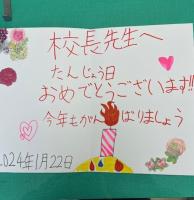 校長先生へ
たんじょう日
おめでとうございます!!
今年もがんばりましょう
2024年1月22日